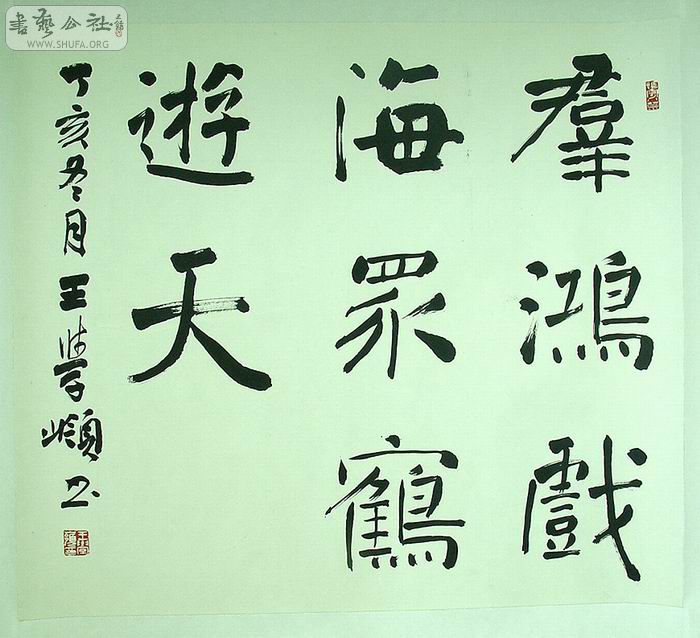 羣鴻戲
海眾鶴
遊天
丁亥冬月王學嶺书
書藝公社
WWW.SHUFA.ORG